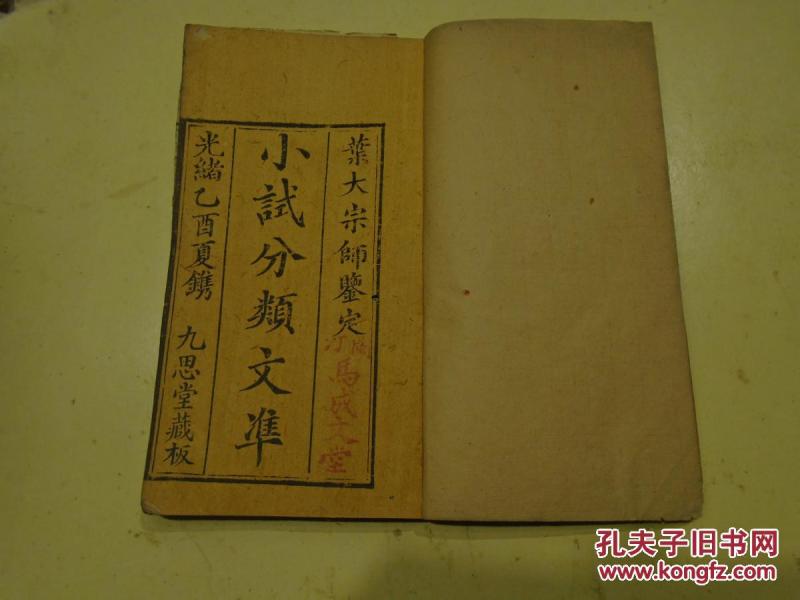 葉大宗師鑒定
小試分類文準
光緒乙酉夏鐫 九思堂藏板
馬氏文堂
孔夫子旧书网
www.kongfz.com